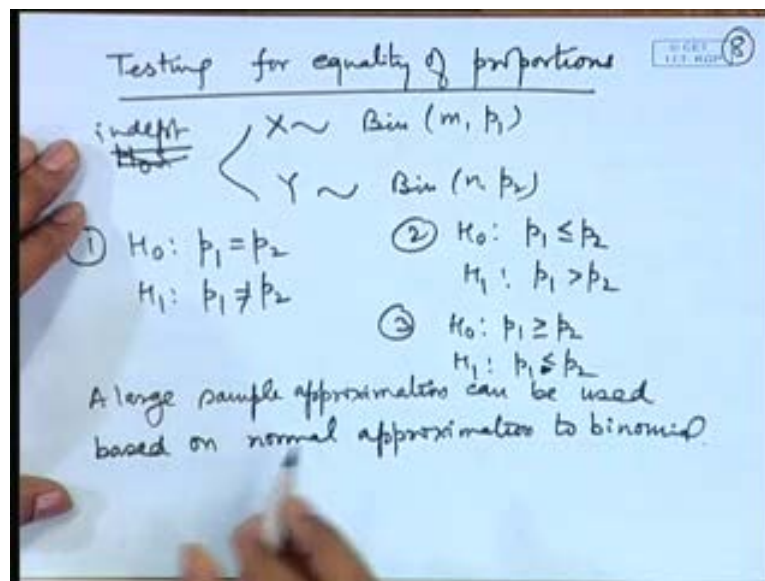 Testing for equality of proportions
© CET
I.I.T. KGP
8
indept X ~ Bin (m, p₁)
Y ~ Bin (n, p₂)
① H₀: p₁ = p₂
H₁: p₁ ≠ p₂
② H₀: p₁ ≤ p₂
H₁: p₁ > p₂
③ H₀: p₁ ≥ p₂
H₁: p₁ < p₂
A large sample approximation can be used
based on normal approximation to binomial.